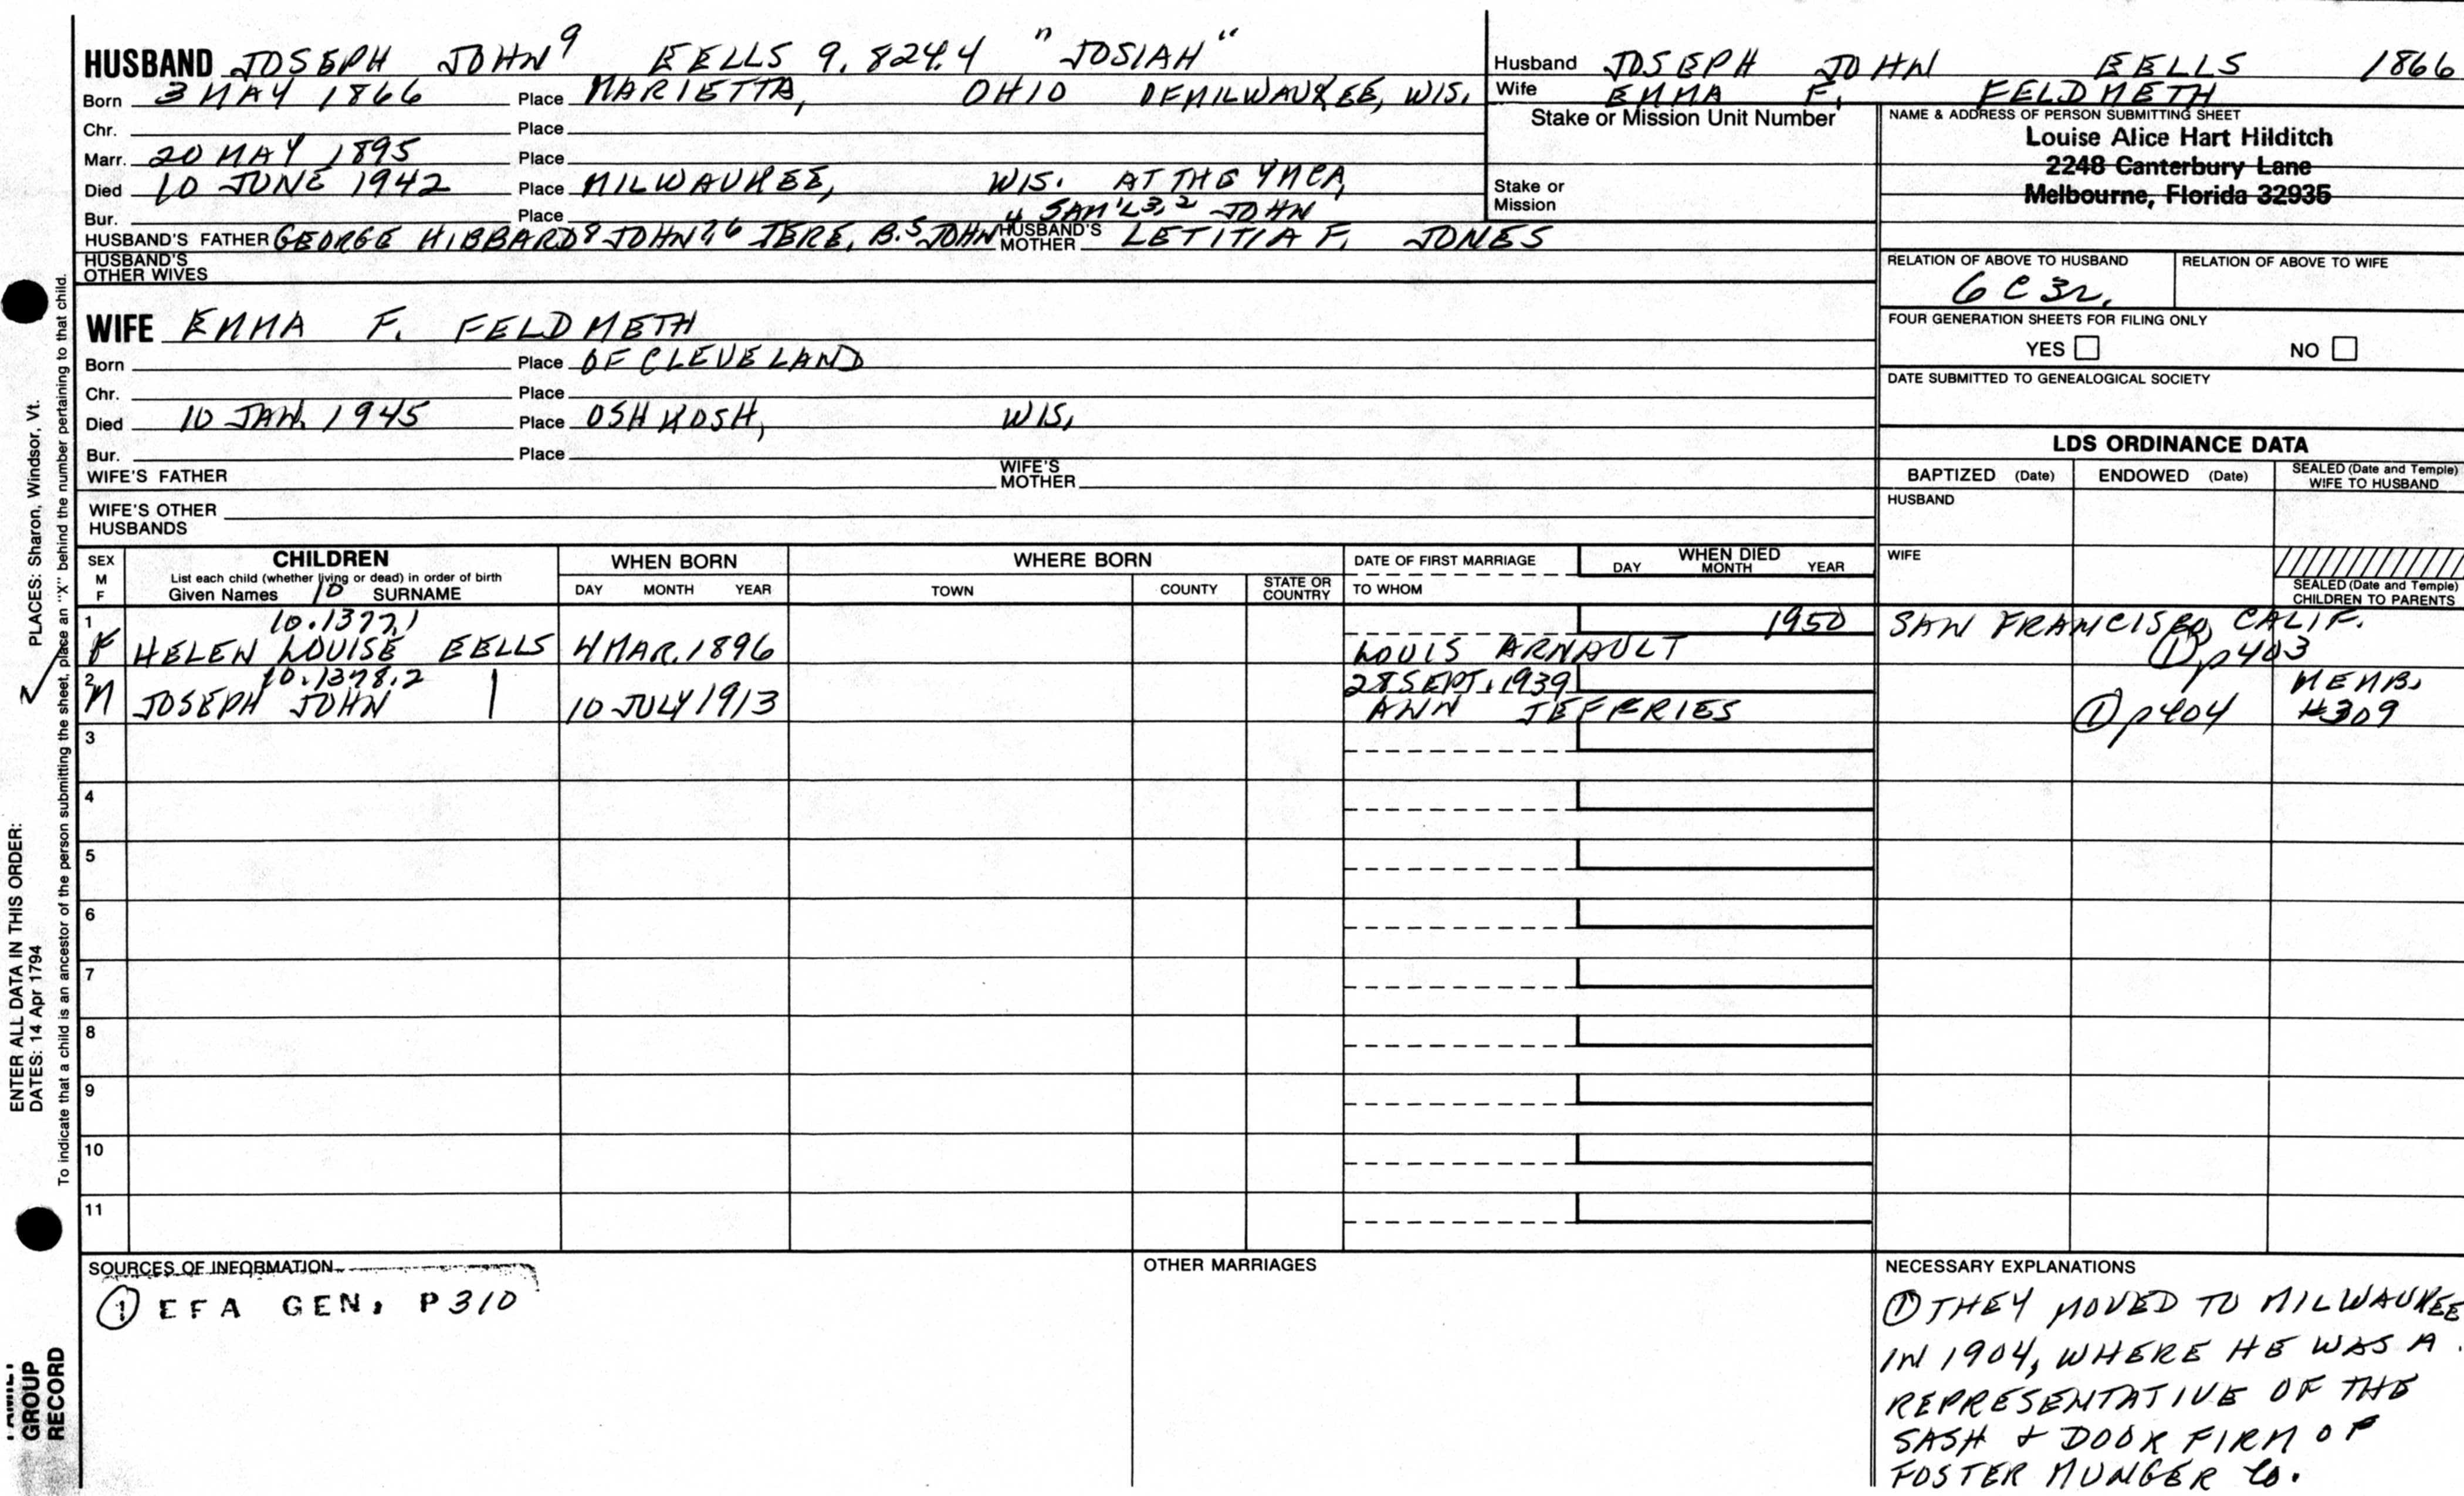 HUSBAND JOSEPH JOHN⁹ EELLS 9.824.4 "JOSIAH"
Born 3 MAY 1866 Place MARIETTA, OHIO OF MILWAUKEE, WIS.
Chr. Place
Marr. 20 MAY 1895 Place
Died 10 JUNE 1942 Place MILWAUKEE, WIS. AT THE YMCA
Bur. Place
4 SAM'L 3,2 JOHN
HUSBAND'S FATHER GEORGE HIBBARD⁸ JOHN 7,6 JERE. B.⁵ JOHN HUSBAND'S MOTHER LETITIA F. JONES
HUSBAND'S OTHER WIVES
Husband JOSEPH JOHN EELLS 1866
Wife EMMA F. FELDMETH
Stake or Mission Unit Number
Stake or Mission
NAME & ADDRESS OF PERSON SUBMITTING SHEET
Louise Alice Hart Hilditch
2248 Canterbury Lane
Melbourne, Florida 32935
RELATION OF ABOVE TO HUSBAND RELATION OF ABOVE TO WIFE
6 C 3r.
FOUR GENERATION SHEETS FOR FILING ONLY
YES NO
DATE SUBMITTED TO GENEALOGICAL SOCIETY
WIFE EMMA F. FELDMETH
Born Place OF CLEVELAND
Chr. Place
Died 10 JAN. 1945 Place OSHKOSH, WIS.
Bur. Place
WIFE'S FATHER WIFE'S MOTHER
WIFE'S OTHER HUSBANDS
LDS ORDINANCE DATA
BAPTIZED (Date) ENDOWED (Date) SEALED (Date and Temple) WIFE TO HUSBAND
HUSBAND
WIFE
SEALED (Date and Temple) CHILDREN TO PARENTS
SEX M F CHILDREN WHEN BORN WHERE BORN DATE OF FIRST MARRIAGE WHEN DIED
List each child (whether living or dead) in order of birth
Given Names 10 SURNAME DAY MONTH YEAR TOWN COUNTY STATE OR COUNTRY TO WHOM DAY MONTH YEAR
1 10.1377.1 1950 SAN FRANCISCO, CALIF.
F HELEN LOUISE EELLS 4 MAR. 1896 LOUIS ARNAULT ① p403
2 10.1378.2 28 SEPT. 1939 MEMB.
M JOSEPH JOHN | 10 JULY 1913 ANN JEFFRIES ① p404 #309
3
4
5
6
7
8
9
10
11
SOURCES OF INFORMATION
① EFA GEN. P310
OTHER MARRIAGES
NECESSARY EXPLANATIONS
① THEY MOVED TO MILWAUKEE
IN 1904, WHERE HE WAS A
REPRESENTATIVE OF THE
SASH & DOOR FIRM OF
FOSTER MUNGER Co.
PLACES: Sharon, Windsor, Vt.
To indicate that a child is an ancestor of the person submitting the sheet, place an "X" behind the number pertaining to that child.
ENTER ALL DATA IN THIS ORDER:
DATES: 14 Apr 1794
FAMILY
GROUP
RECORD